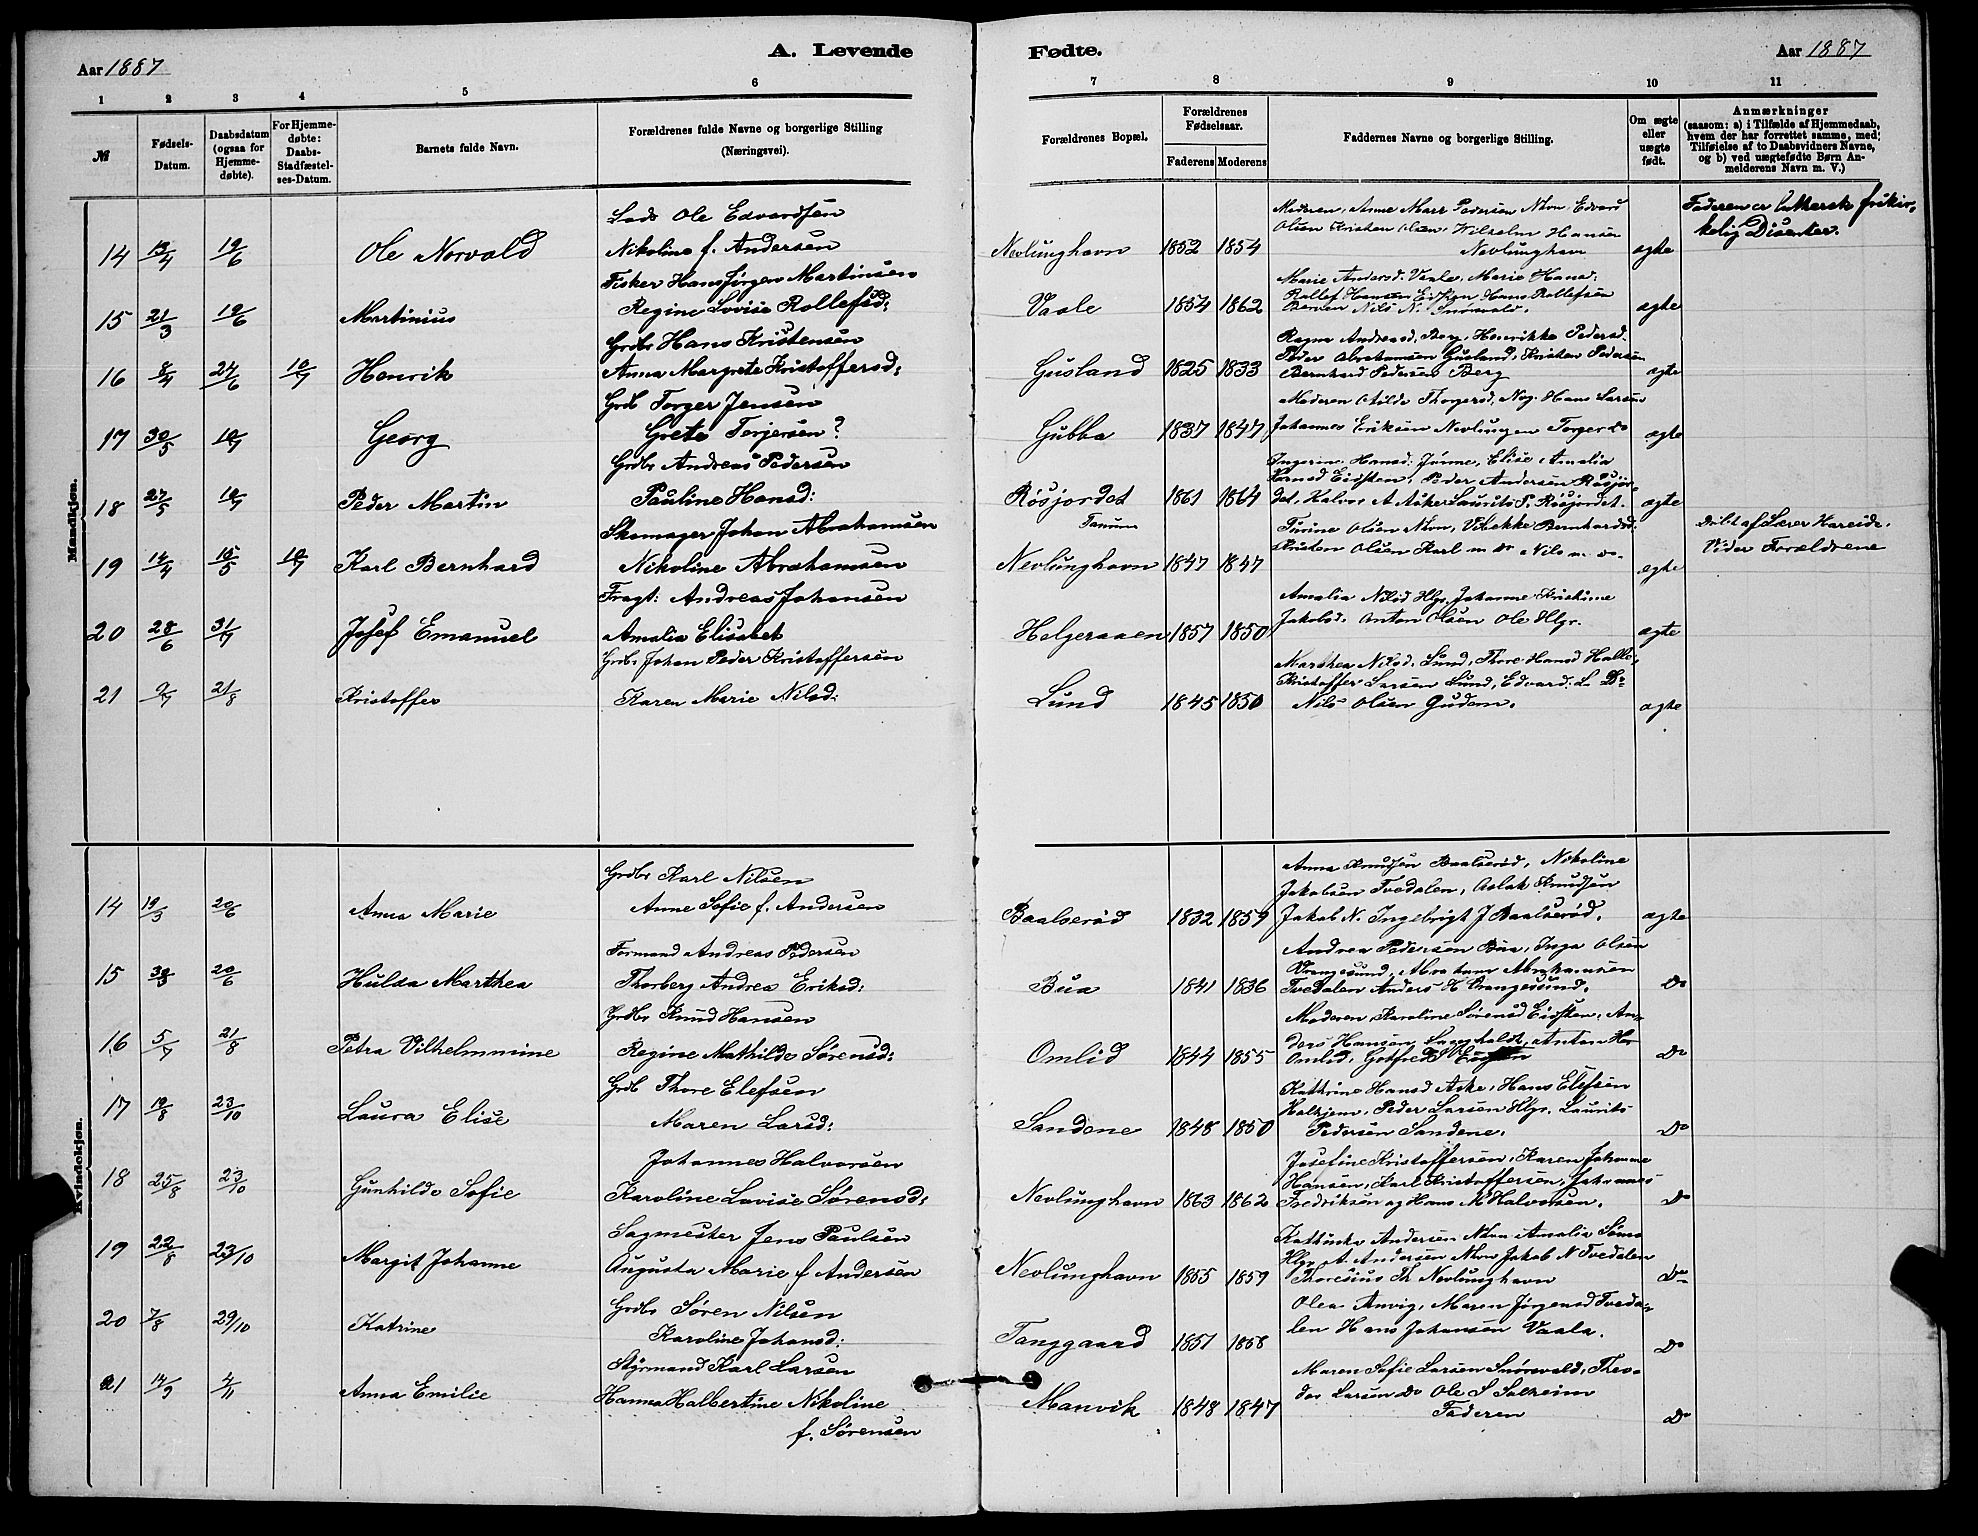 Aar 1887
A. Levende
Fødte.
Aar 1887
1 2 3 4 5 6 7 8 9 10 11
№
Fødsels-Datum.
Daabsdatum (ogsaa for Hjemme-døbte).
For Hjemme-døbte: Daabs-Stadfæstel-ses-Datum.
Barnets fulde Navn.
Forældrenes fulde Navne og borgerlige Stilling
(Næringsvei).
Forældrenes Bopæl.
Forældrenes Fødselsaar.
Faderens Moderens
Faddernes Navne og borgerlige Stilling.
Om ægte eller uægte født.
Anmærkninger
(saasom: a) i Tilfælde af Hjemmedaab,
hvem der har forrettet samme, med
Tilføielse af to Daabsvidners Navne,
og b) ved uægtefødte Børn An-
melderens Navn m. V.)
Mandkjøn.
Lods Ole Edvardsen
Moderen, Anne Marr Pedersen Nhvn Edvard
Faderen er luthersk frikir-
Olsen Kristen Olsen, Wilhelm Hansen
kelig Disenter.
14 13/4 19/6 Ole Norvald Nikoline f. Andersen Nevlunghavn 1852 1854 Nevlunghavn ægte
Fisker Hans Jørgen Martinsen
Marie Andersd. Vaale, Marie Hansd.
Rollef Hansen Hans Rollefsen
15 21/3 19/6 Martinius Regine Lovise Rollefsd: Vaale 1854 1862 Nils N. Snørvald. ægte
Grdbr Hans Kristensen
Ragna Andreasd. Berg, Henrikke Pedersd.
Peder Abrahamsen Gusland, Kristen Pedersen
16 8/4 24/6 10/7 Henrik Anna Margrete Kristoffersd: Gusland 1825 1833 Bernhard Pedersen Berg ægte
Grdb Torger Jensen
Moderen Thorgersd, Hans Larsen
17 30/5 10/7 Georg Grete Torjersen? Gubba 1837 1847 Johannes Eriksen Nevlungen Torger do ægte
Grdbr Andreas Pedersen
Ingerine Hansd: Jonne, Elise Amalia
Eidsten, Peder Andersen Røsjor-
18 27/5 10/7 Peder Martin Pauline Hansd: Røsjordet 1861 1864 det, Halvor A Asker Laurits P. Røsjordet. ægte
Tanum
Skomager Johan Abrahamsen
Turine Olsen Nhvn, Bernhardsd.
Døbt af Lærer Hareide.
19 14/4 15/5 10/7 Karl Bernhard Nikoline Abrahamsen Nevlunghavn 1847 1847 Kristen Olsen Karl m Do Nils m. do. ægte
Vider Forældrene
Fragt: Andreas Johansen
Amalia Nilsd Hlgr. Johanne Kristine
20 28/6 31/7 Josef Emanuel Amalia Elisabet Helgeraaen 1857 1850 Jakobsd. Anton Olsen Ole Hlgr. ægte
Grdbr Johan Peder Kristoffersen
Marthea Nilsd. Lund, Thore Hansd Halle,
Kristoffer Larsen Lund, Edvard L Do
21 9/7 21/8 Kristoffer Karen Marie Nilsd: Lund 1845 1850 Nils Olsen Gudem. ægte
Kvindekjøn.
Grdbr Karl Nilsen
Anna Knudsen Baalserød, Nikoline
Jakobsen Tvedalen, Aslak Knudsen
14 19/3 20/6 Anna Marie Anne Sofie f. Andersen Baalserød 1832 1859 Jakob N. Ingebrigt J Baalserød. ægte
Formand Andreas Pedersen
Andrea Pedersen Bua, Inga Olsen
Vrangesund, Abraham Abrahamsen
15 30/3 20/6 Hulda Marthea Thorberg Andrea Eriksd: Bua 1841 1836 Tvedalen Anders H Vrangesund. Do
Grdbr Knud Hansen
Moderen Karoline Sørensd Eidsten, An-
ders Hansen, Anton Hs
16 5/7 21/8 Petra Vilhelmmine Regine Mathilde Sørensd: Omlid 1844 1855 Omlid, Gotfred Eidsten Do
Grdb Thore Elefsen
Kathrine Hansd Aske, Hans Elefsen
Peder Larsen Hlgr. Laurits
17 19/8 23/10 Laura Elise Maren Larsd: Sandene 1848 1850 Pedersen Sandene. Do
Johannes Halvorsen
Josefine Kristoffersen, Karen Johanne
Hansen, Karl Kristoffersen, Johannes
18 25/8 23/10 Gunhilde Sofie Karoline Lovise Sørensd: Nevlunghavn 1863 1862 Fredriksen og Hans M Halvorsen. Do
Sagmester Jens Paulsen
Kathinka Andersen Nhvn Amalia
Hlgr A. Andersen Nhvn Jakob N Tvedalen
19 22/8 23/10 Margit Johanne Augusta Marie f Andersen Nevlunghavn 1855 1859 Thoresius Th Nevlunghavn Do
Grdbr Søren Nilsen
Olea Anvig, Maren Jørgensd Tveda-
20 7/8 29/10 Katrine Karoline Johansd: Tanggaard 1857 1858 len Hans Johansen Vaala. Do
Styrmand Karl Larsen
Maren Sofie Larsen Snørevald, Theo-
21 14/9 4/11 Anna Emilie Hanna Halbertine Nikoline Manvik 1848 1847 dor Larsen Do Ole S Solheim
f. Sørensen Faderen Do